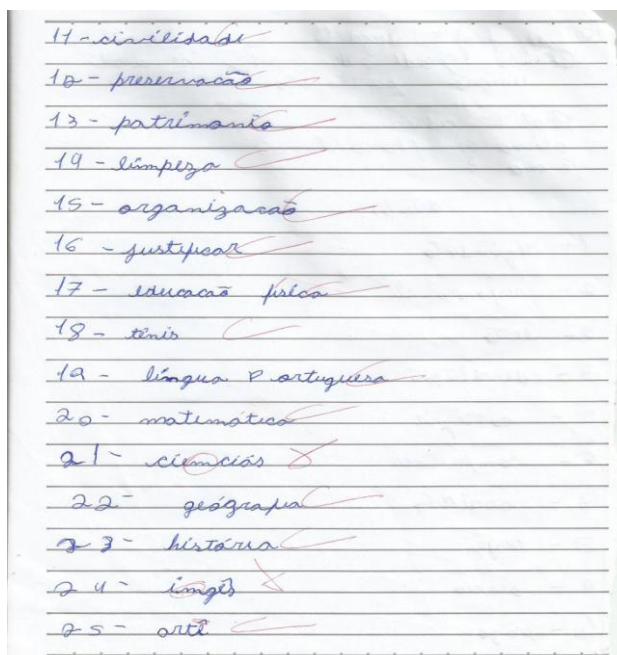 11 - civilidade
12 - preservacão
13 - patrimonio
14 - limpeza
15 - organizacaõ
16 - justificar
17 - educacaõ física
18 - tênis
19 - língua Portuguesa
20 - matemática
21 - ciemciás
22 - geógrafia
23 - história
24 - imgês
25 - artê